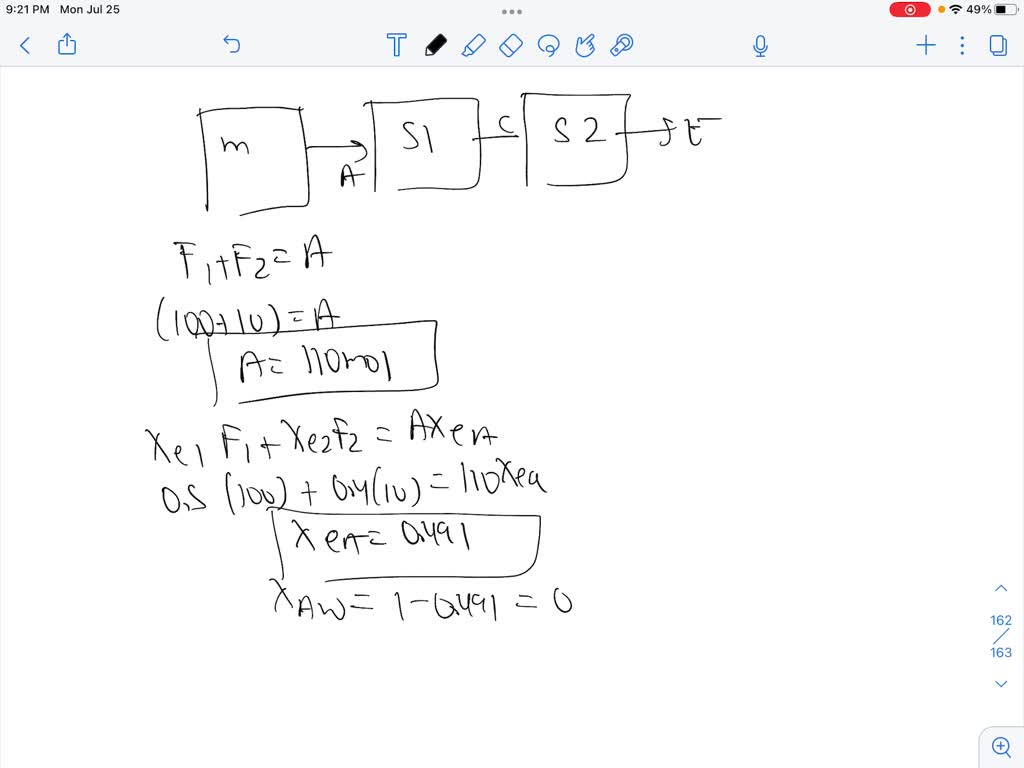 9:21 PM Mon Jul 25
49%
T
m
A
S1
C
S2
E
F1+F2=A
(100+10)=A
A=110mol
Xe1 F1+Xe2F2=AXeA
0.5(100)+0.4(10)=110Xea
XeA=0.491
XAW=1-0.491=0
162
163